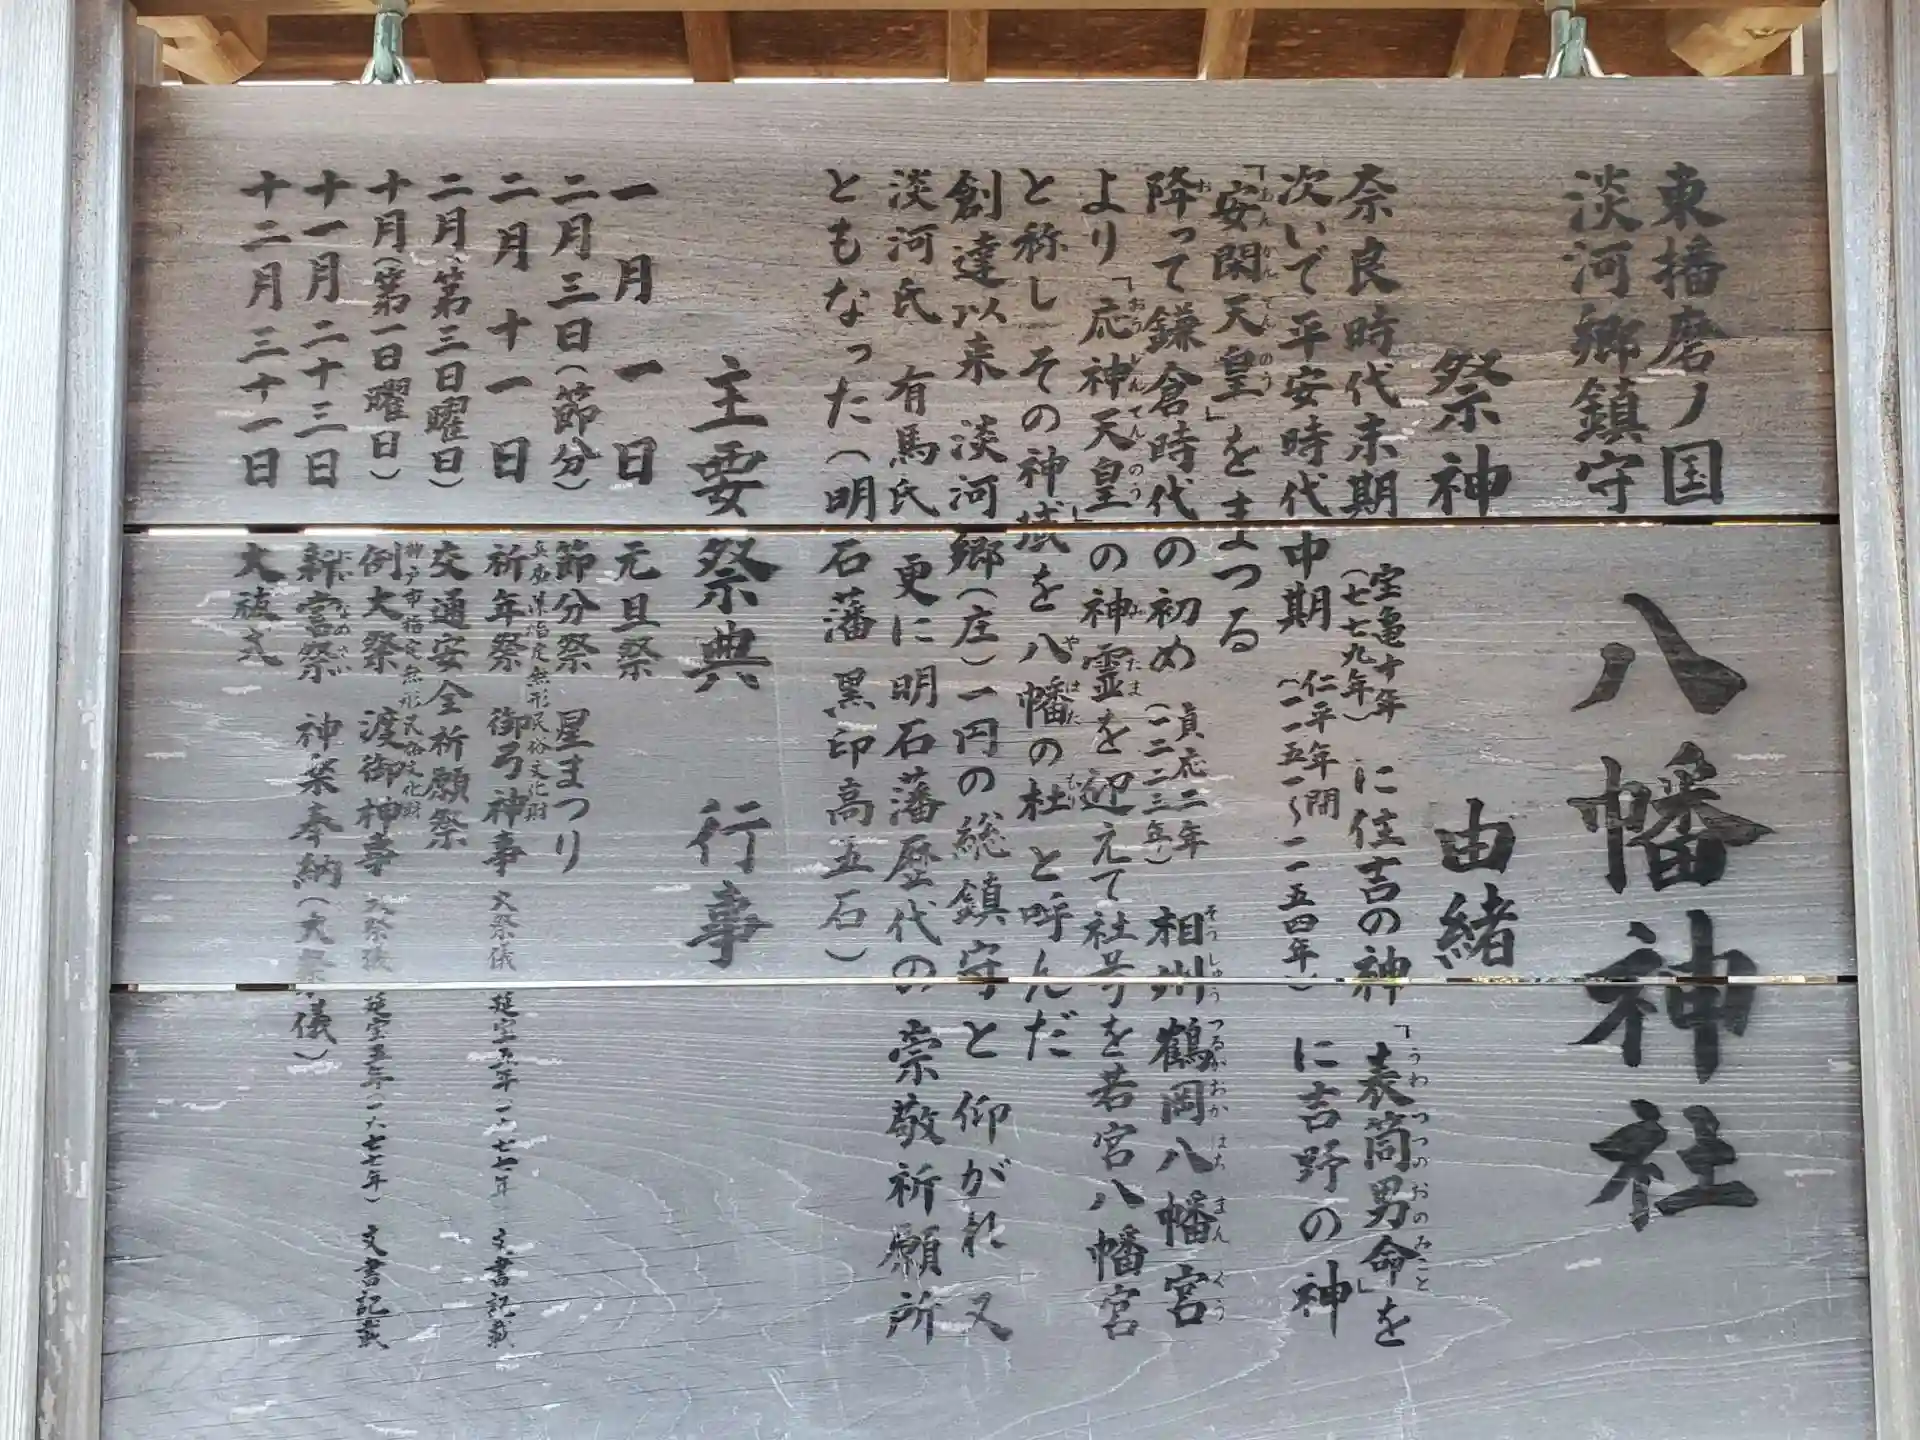 東播磨ノ国
淡河郷鎮守
八幡神社
祭神 由緒
奈良時代末期(宝亀十年七七九年)に住吉の神「表筒男命」を
うわつつのおのみこと
次いで平安時代中期(仁平年間一一五一〜一一五四年)に吉野の神
「安閑天皇」をまつる
あんかんてんのう
降って鎌倉時代の初め(貞応二年一二二三年)相州鶴岡八幡宮
お そうしゅうつるがおかはちまんぐう
より「応神天皇」の神霊を迎えて社号を若宮八幡宮
おうじんてんのう みたま
と称し その神域を八幡の杜と呼んだ
やはた もり
創達以来 淡河郷(庄)一円の総鎮守と仰がれ又
淡河氏 有馬氏 更に明石藩歴代の崇敬祈願所
ともなった(明石藩 黒印高五石)
主要祭典 行事
一月一日 元旦祭
二月三日(節分) 節分祭 星まつり
兵庫県指定無形民俗文化財
二月十一日 祈年祭 御弓神事 文書記載
二月(第三日曜日) 交通安全祈願祭
神戸市指定無形民俗文化財
十月(第一日曜日) 例大祭 渡御神事 延宝五年(一六七七年) 文書記載
十一月二十三日 新嘗祭 神楽奉納(大祭儀)
にいなめさい
十二月三十一日 大祓式